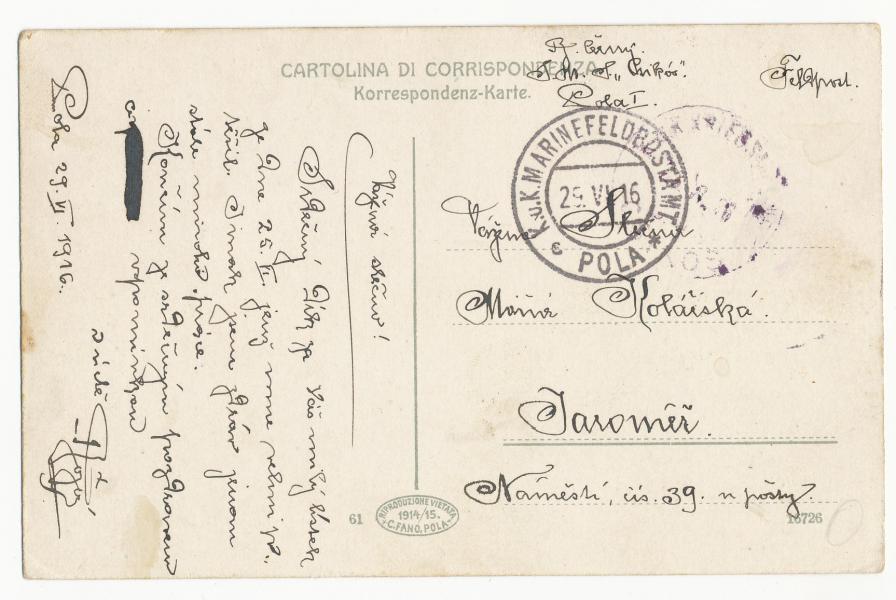 CARTOLINA DI CORRISPONDENZA
Korrespondenz-Karte.
Feldpost.
Pola I.
K.u.K. MARINEFELDPOSTAMT
29. VI 16
c POLA *
Slečna
Kolářská.
Jaroměř.
Náměstí, čís. 39. u pošty.
61
RIPRODUZIONE VIETATA
1914/15.
C. FANO, POLA
16726
Pola 29. VI 1916.
Vážná slečno!
Srdečný dík za Váš milý lístek
ze dne 25. VI. jenž mne velmi po-
těšil. Jinak jsem zdráv jenom
stále mnoho práce.
Končím se srdečným pozdravem
vzpomínkou